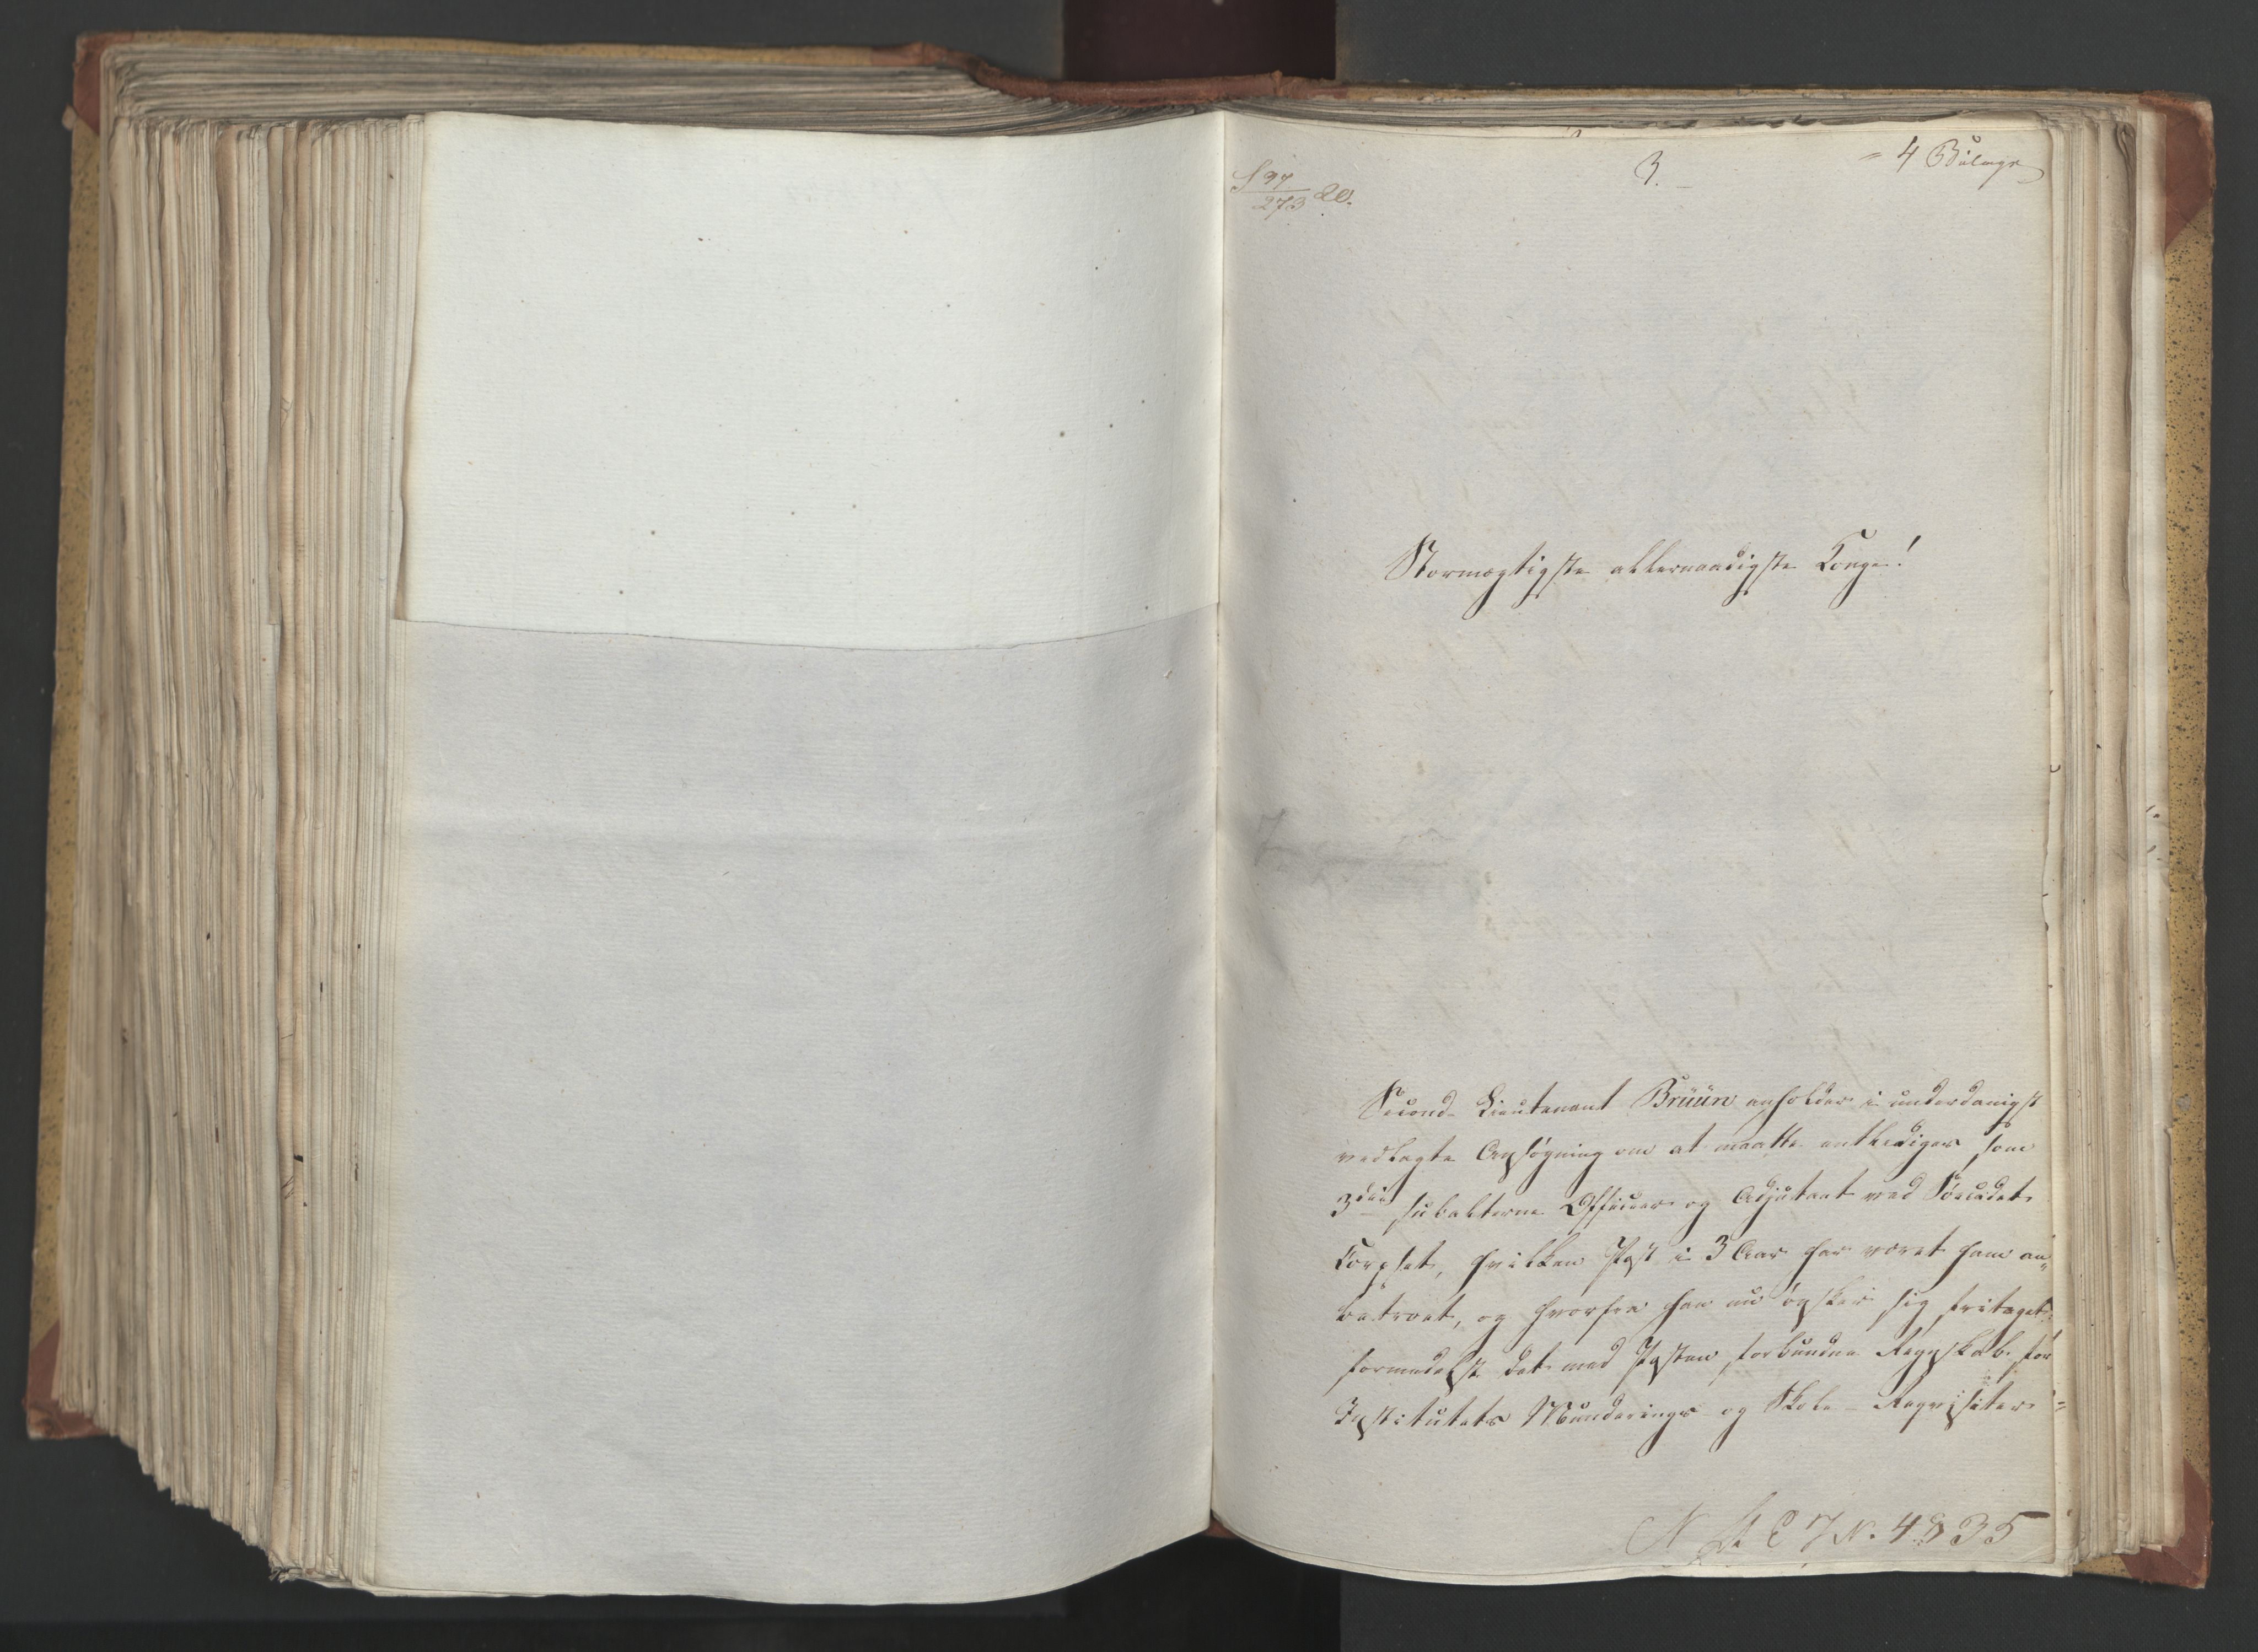 3.
= 4 Bilage
Stormægtigste allernaadigste Konge!
Second-Lieutenant Brüün anholder i underdanigst
vedlagte Ansøgning om at maatte entlediges som
3die subalterne Officeer og Adjutant ved Søecadet
Corpset, hvilken Post i 3 Aar har været ham an„
betroet, og hvorfra han nu ønsker sig fritaget
formedelst det med Posten forbundne Regnskab for
Institutets Munderings og Skole-Reqvisiter =
N. 4835